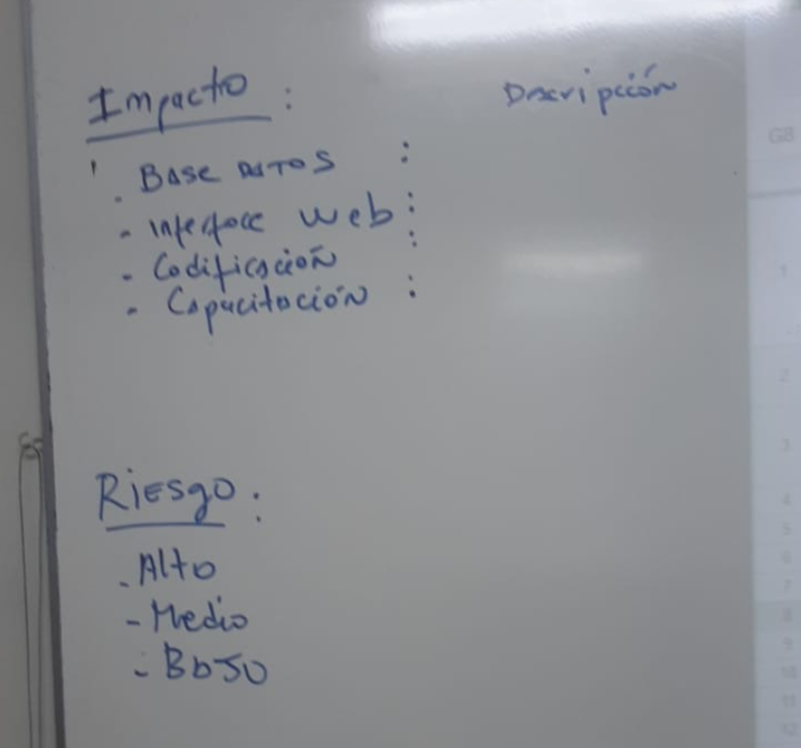 Impacto : Descripción
. Base DATOS :
- Interface web :
- Codificación :
- Capacitación :
Riesgo :
- Alto
- Medio
- Bajo
G8
1
2
3
4
5
6
7
8
9
10
11
12